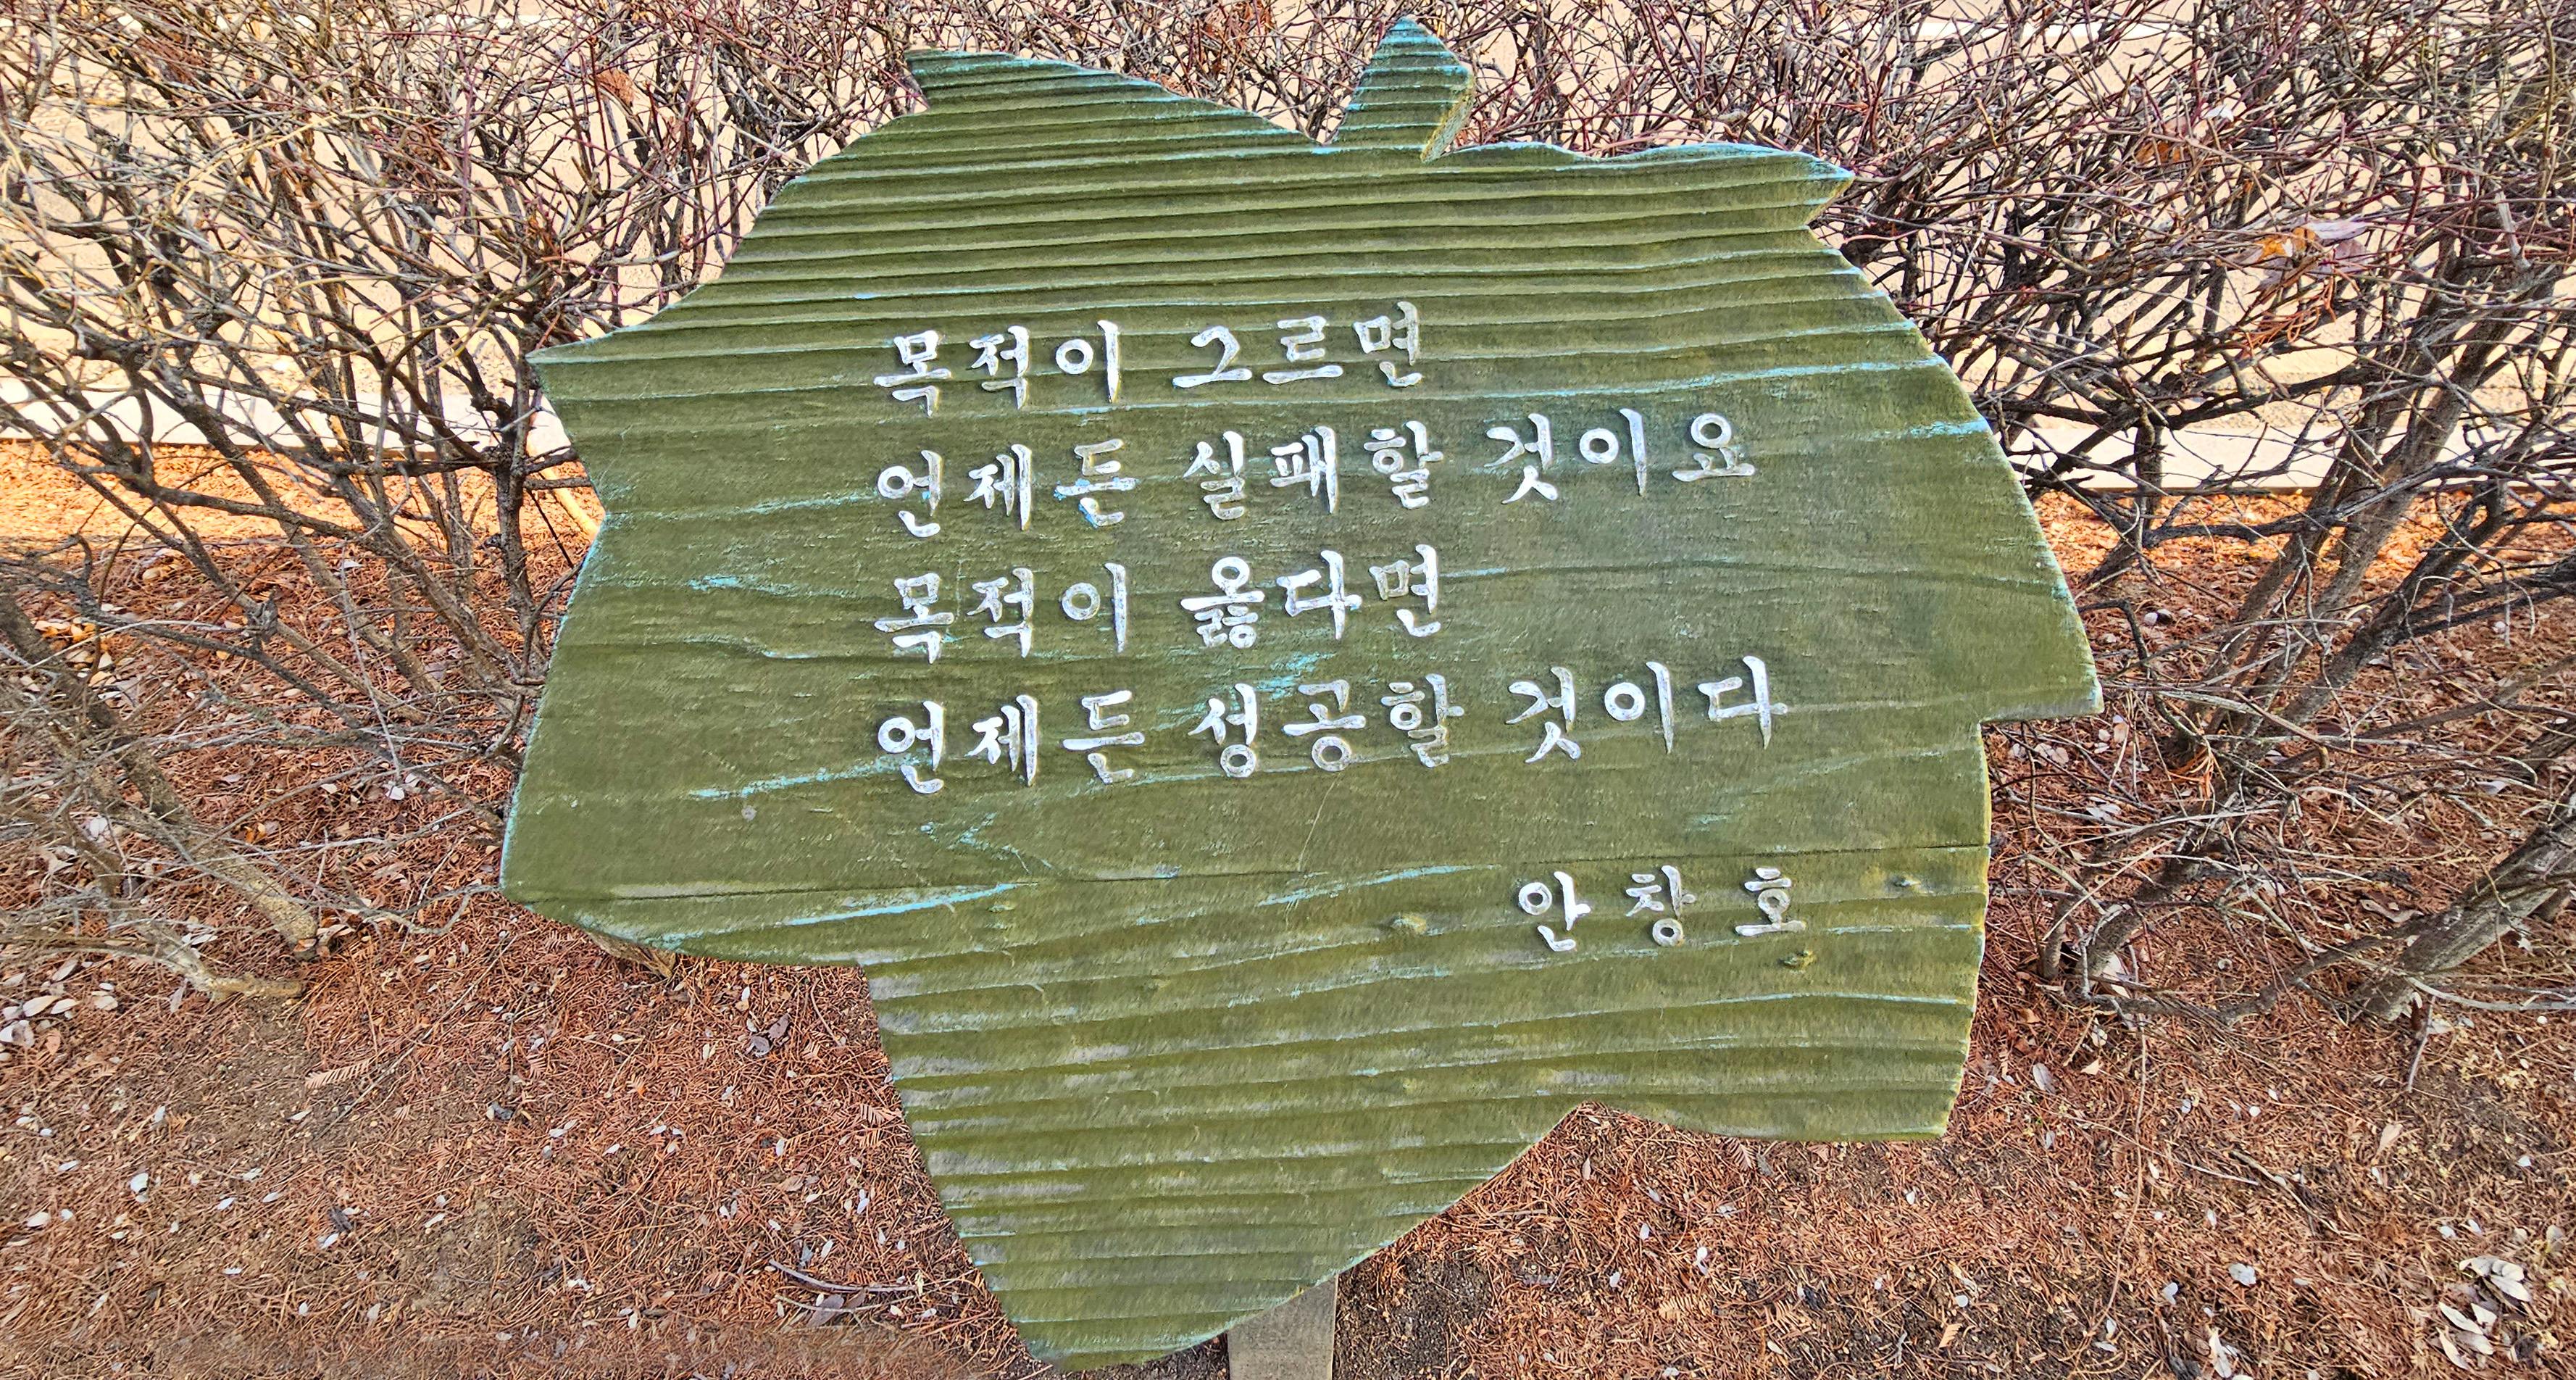 목적이 그르면
언제든 실패할 것이요
목적이 옳다면
언제든 성공할 것이다
안창호